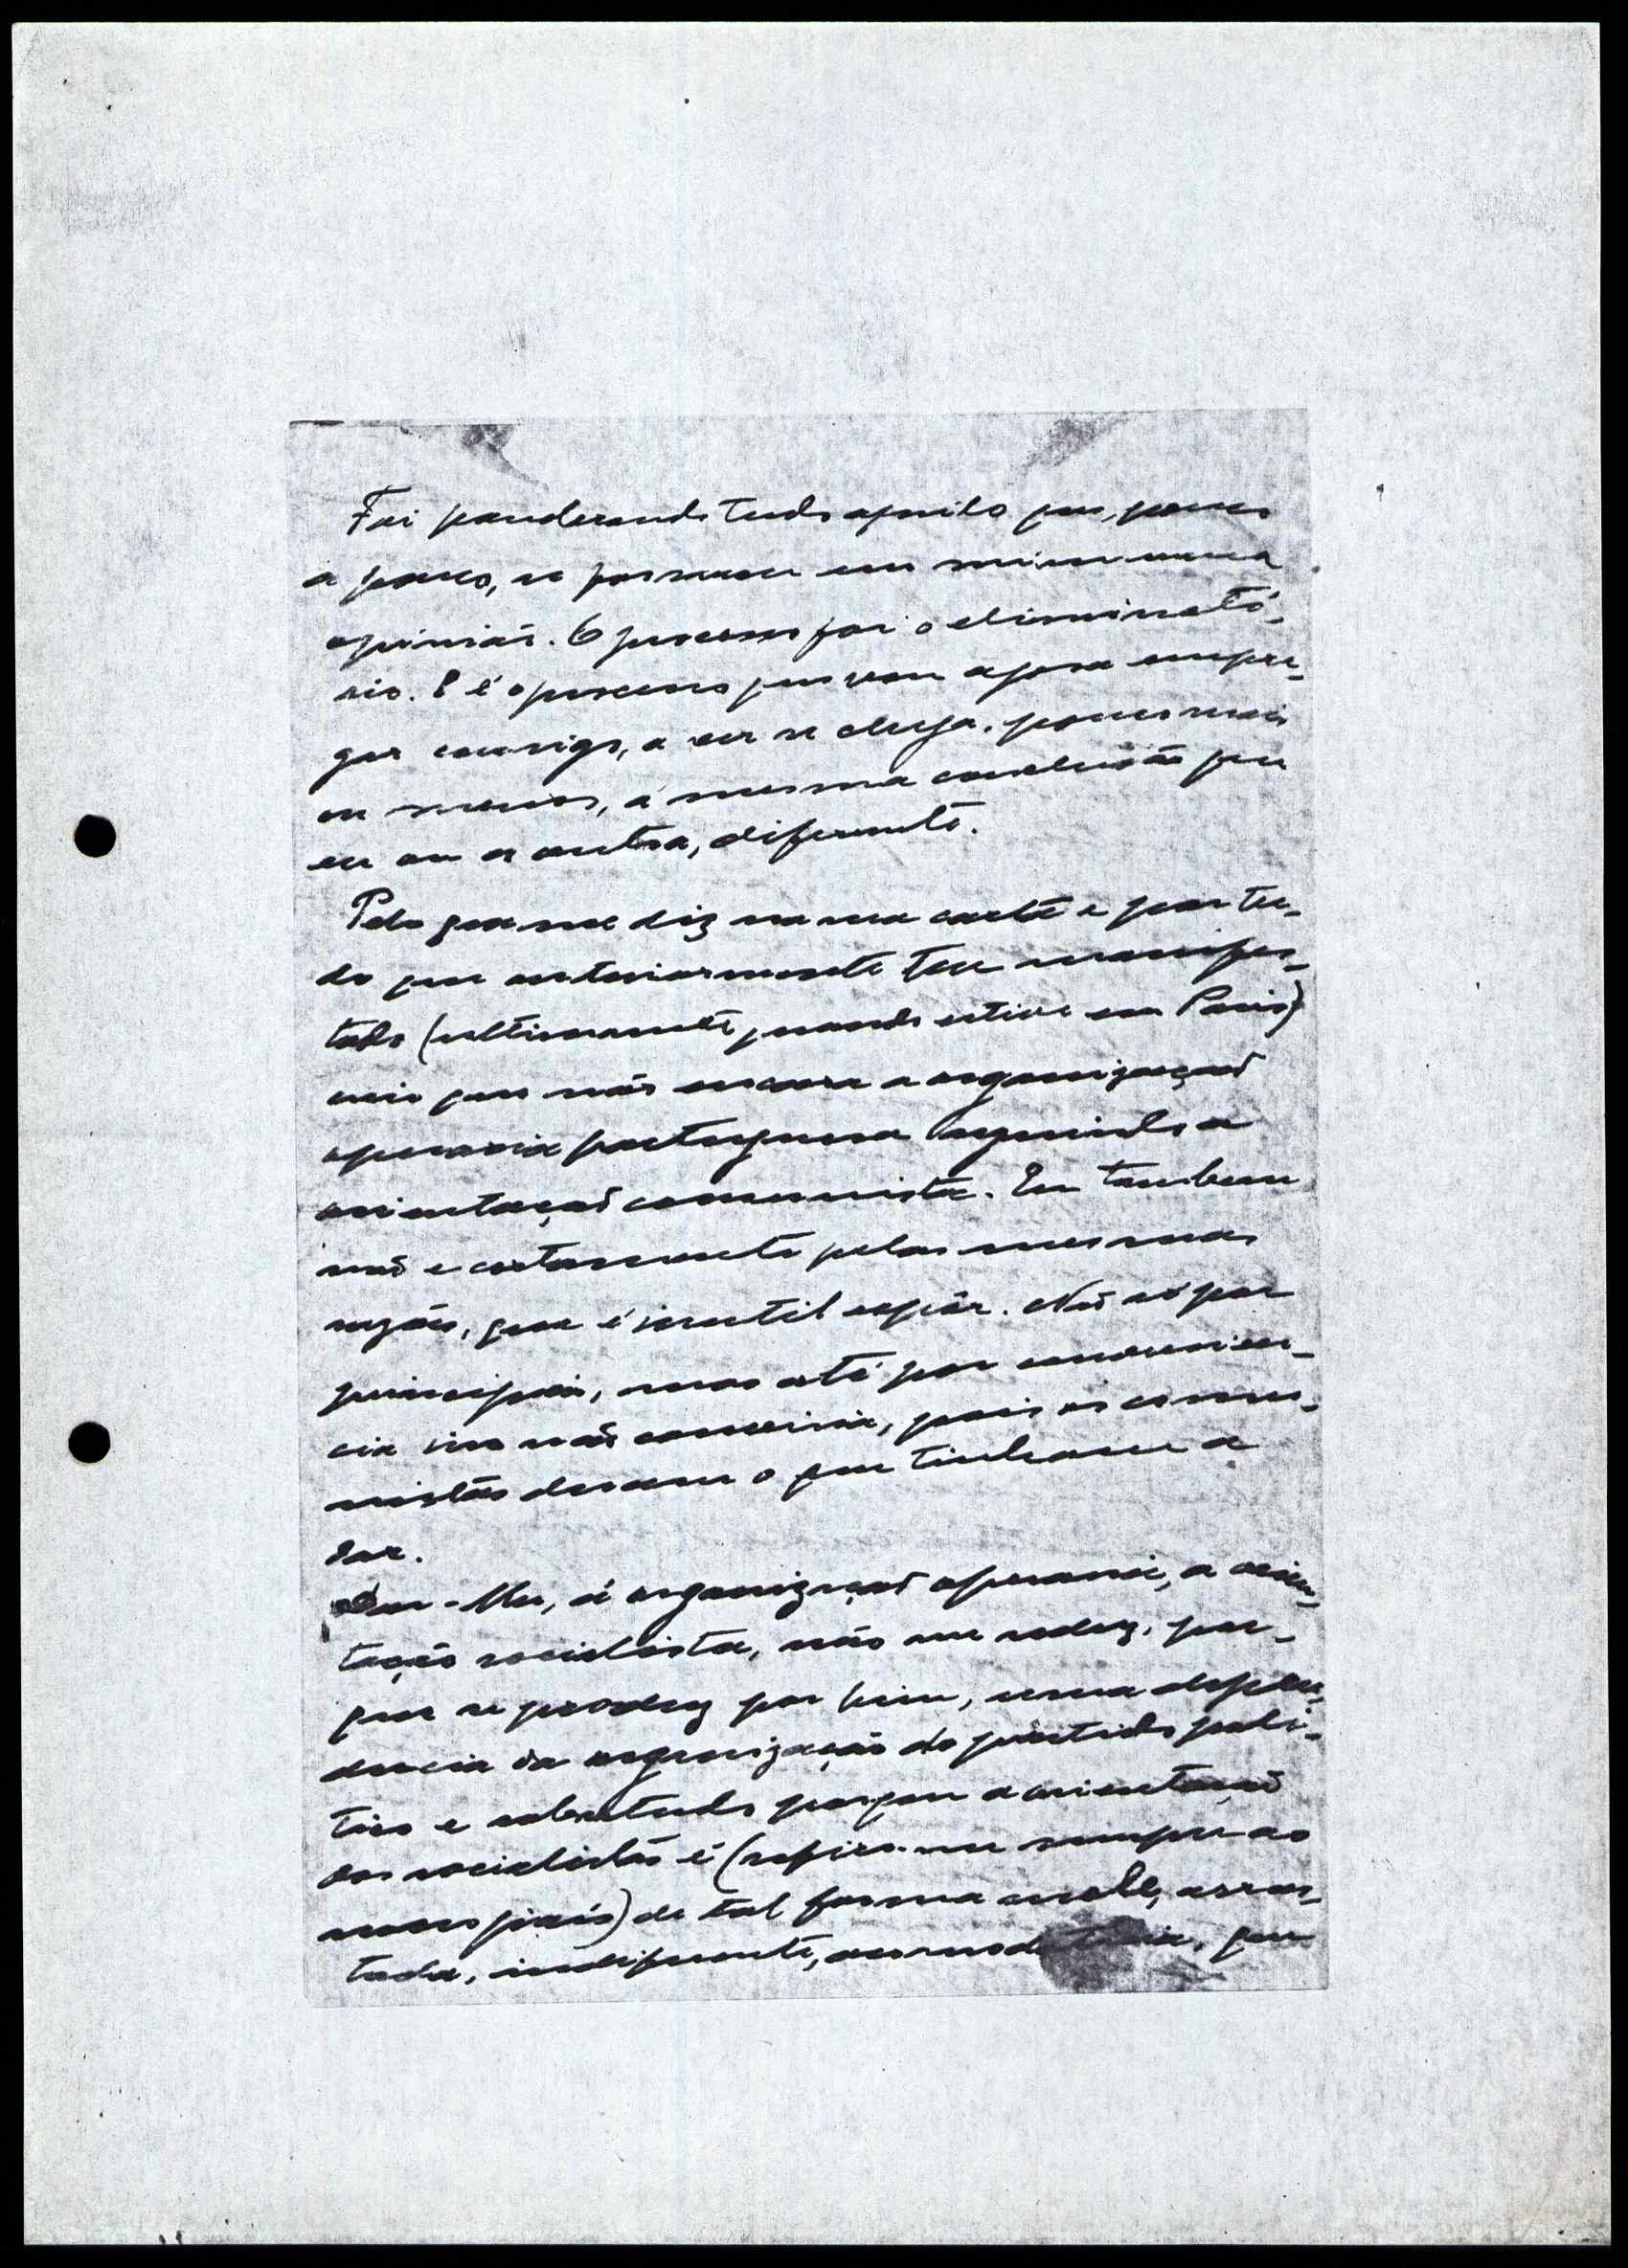 Fui ponderando tudo aquilo que, pouco
a pouco, se formou em mim uma
opinião. O processo foi o eliminató-
rio. E é o processo que vou agora empre-
gar consigo, a ver se chega, pouco mais
ou menos, á mesma conclusão que
eu ou a outra, diferente.
Pelo que me diz na sua carta e por tu-
do que anteriormente tem manifes-
tado (ultimamente, quando estive em Paris)
creio que não encara a organizaçaõ
operaria portuguesa seguindo a
orientaçaõ comunista. Eu tambem
naõ e certamente pelas mesmas
razões, que é inutil expôr. Naõ só por
principio, mas até por conveniên-
cia isso não convinha, pois os comu-
nistas deram o que tinham a
dar.
Dar-lhe, á organizaçaõ operaria, a orien-
tação socialista, não me seduz, por-
que se produz por fim, uma depen-
dencia da organização do partido poli-
tico e sobretudo porque a orientaçaõ
dos socialistas é (refiro-me sempre ao
nosso paiz) de tal forma mole, arras-
tada, indiferente, que